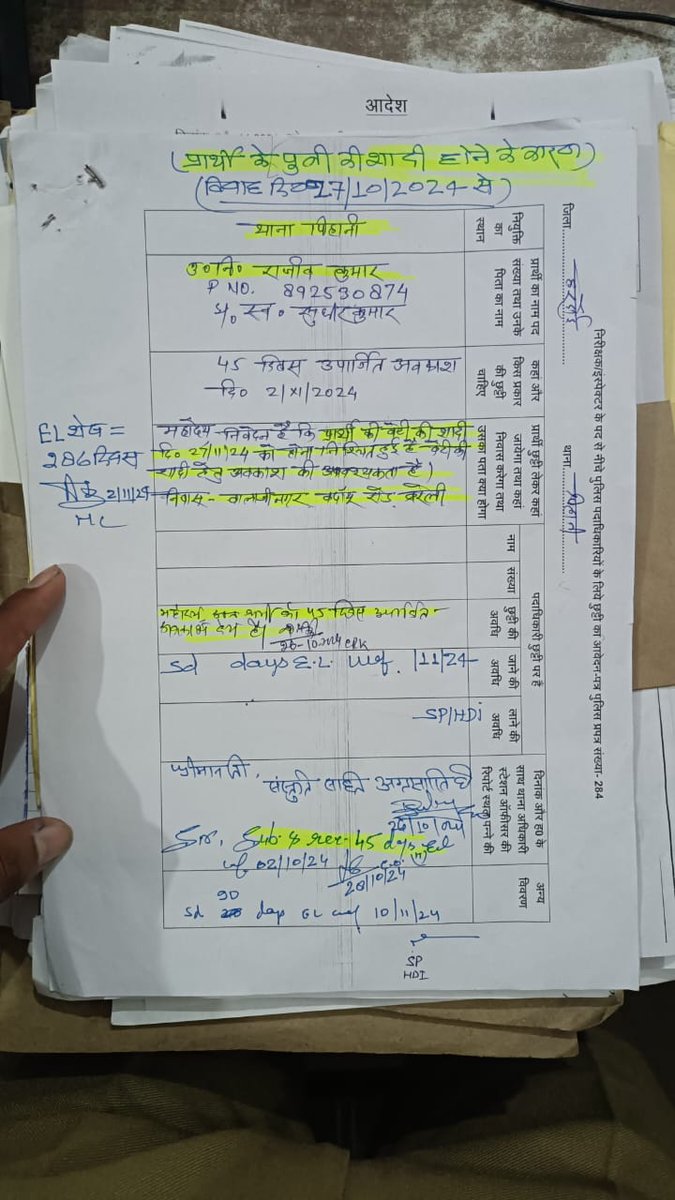 आदेश
(प्रार्थी के पुत्री की शादी होने के कारण)
(विवाह दिनांक 27/10/2024 से)
निरीक्षक/इंस्पेक्टर के पद से नीचे पुलिस पदाधिकारियों के लिये छुट्टी का आवेदन-पत्र पुलिस प्रपत्र संख्या- 284
जिला हरदोई थाना पिहानी
नियुक्ति का स्थान
थाना पिहानी
प्रार्थी का नाम पद संख्या तथा उनके पिता का नाम
उ०नि० राजीव कुमार
P NO. 892530874
S/o स्व० सुधीर कुमार
कहां और किस प्रकार की छुट्टी चाहिए
45 दिवस उपार्जित अवकाश
दि० 2/XI/2024
प्रार्थी छुट्टी लेकर कहां जायेगा तथा कहां निवास करेगा तथा उसका पता क्या होगा
महोदय निवेदन है कि प्रार्थी की बेटी की शादी
दि० 27/11/24 को होना निश्चित हुई है बेटी की
शादी हेतु अवकाश की आवश्यकता है)
निवास:- बालाजीनगर बदायूं रोड बरेली
EL शेष =
286 दिवस
2/11/24
HC
पदाधिकारी छुट्टी पर है
नाम
संख्या
छुट्टी की अवधि
जाने की अवधि
लाने की अवधि
45 दिवस उपार्जित
26-10-2024
Sd days E.L. wef. /11/24
SP/HDI
दिनांक और ह0 के साथ थाना अधिकारी स्टेशन ऑफीसर की रिपोर्ट स्थल पन्ने की
श्रीमान जी,
संस्तुति सहित अग्रसारित है
26/10/24
Sir, Sub & rec. 45 days EL
wf 02/10/24
28/10/24
अन्य विवरण
30
Sd days EL wef 10/11/24
SP
HDI